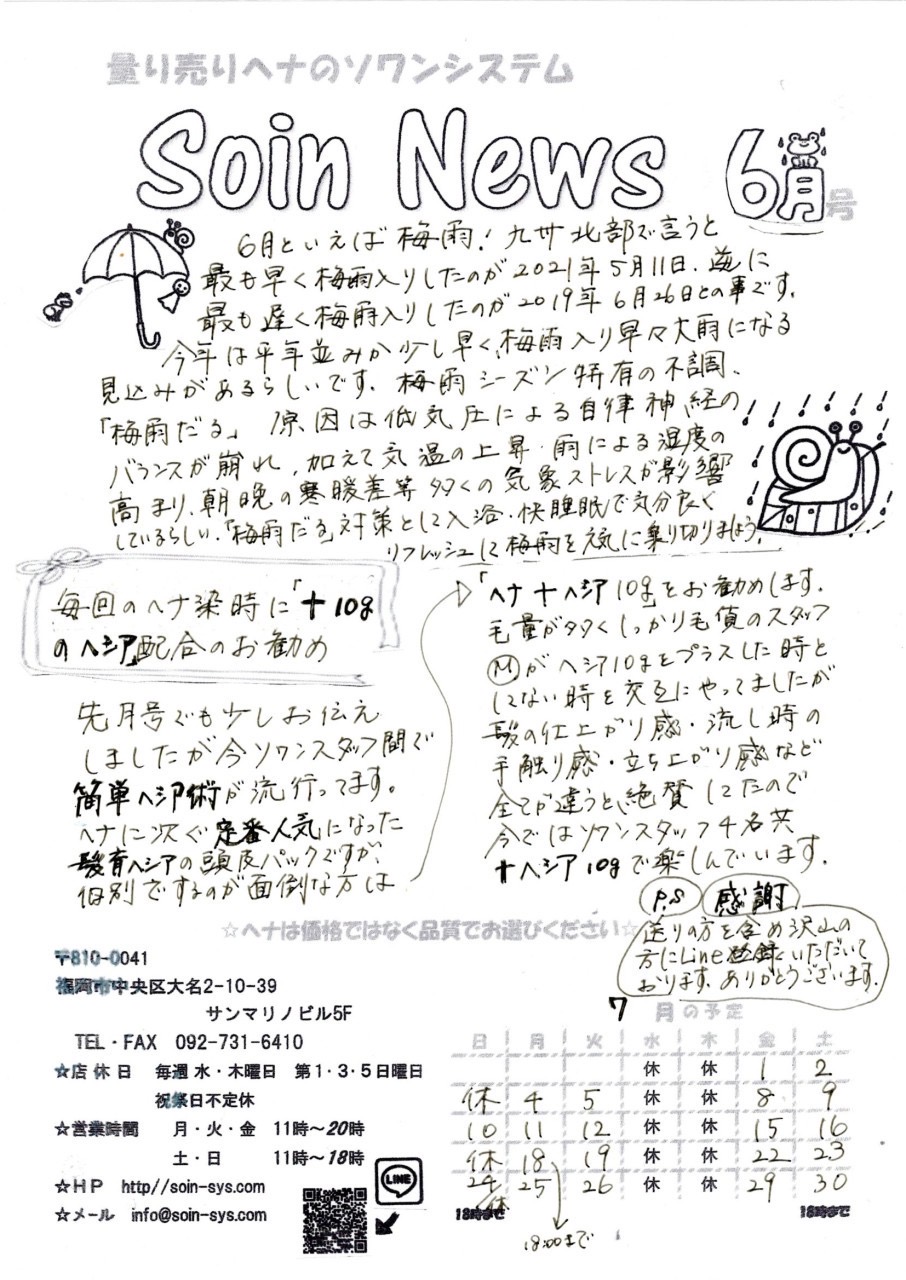 量り売りヘナのソワンシステム
Soin News 6月号
6月といえば梅雨！九州北部で言うと
最も早く梅雨入りしたのが2021年5月11日、逆に
最も遅く梅雨入りしたのが2019年6月26日との事です。
今年は平年並みか少し早く、梅雨入り早々大雨になる
見込みがあるらしいです。梅雨シーズン特有の不調、
「梅雨だる」原因は低気圧による自律神経の
バランスが崩れ、加えて気温の上昇・雨による湿度の
高まり、朝晩の寒暖差等多くの気象ストレスが影響
しているらしい。「梅雨だる」対策として入浴・快睡眠で気分良く
リフレッシュして梅雨を元気に乗り切りましょう。
毎回のヘナ染時に「＋10g
のヘシア」配合のお勧め
先月号でも少しお伝え
しましたが今ソワンスタッフ間で
簡単ヘシア術が流行ってます。
ヘナに次ぐ定番人気になった
髪育ヘシアの頭皮パックですが、
個別でするのが面倒な方は
「ヘナ＋ヘシア10g」をお勧めします。
毛量が多くしっかり毛質のスタッフ
Ⓜがヘシア10gをプラスした時と
してない時を交互にやってましたが
髪の仕上がり感・流し時の
手触り感・立ち上がり感など
全てが違うと絶賛してたので
今ではソワンスタッフ4名共
＋ヘシア10gで楽しんでいます。
P.S 感謝
送りの方を含め沢山の
方にLine登録いただいて
おります。ありがとうございます。
☆ヘナは価格ではなく品質でお選びください☆
〒810-0041
福岡市中央区大名2-10-39
サンマリノビル5F
TEL・FAX 092-731-6410
☆店休日 毎週水・木曜日 第1・3・5日曜日
祝祭日不定休
☆営業時間 月・火・金 11時～20時
土・日 11時～18時
☆HP http//soin-sys.com
☆メール info@soin-sys.com
LINE
7月の予定
日 月 火 水 木 金 土
休 休 1 2
休 4 5 休 休 8 9
10 11 12 休 休 15 16
休 18 19 休 休 22 23
24 25 26 休 休 29 30
休
18時まで 18時まで
18:00まで